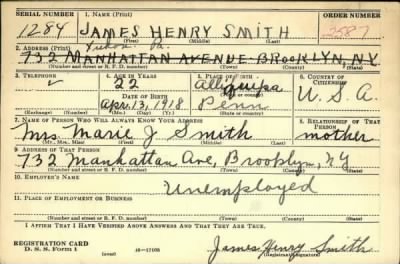 SERIAL NUMBER 1. NAME (Print) ORDER NUMBER
1284 JAMES HENRY SMITH 3587
(First) (Middle) (Last)
2. ADDRESS (Print) Pa.
732 MANHATTAN AVENUE BROOKLYN, NY
(Number and street or R. F. D. number) (Town) (County) (State)
3. TELEPHONE 4. AGE IN YEARS 5. PLACE OF BIRTH 6. COUNTRY OF CITIZENSHIP
22 Aliquippa
DATE OF BIRTH (Town or county)
Apr. 13, 1918 Penn U. S. A.
(Exchange) (Number) (Mo.) (Day) (Yr.) (State or country)
7. NAME OF PERSON WHO WILL ALWAYS KNOW YOUR ADDRESS 8. RELATIONSHIP OF THAT PERSON
Mrs. Marie J Smith mother
(Mr., Mrs., Miss) (First) (Middle) (Last)
9. ADDRESS OF THAT PERSON
732 Manhattan Ave, Brooklyn, NY
(Number and street or R. F. D. number) (Town) (County) (State)
10. EMPLOYER'S NAME
Unemployed
11. PLACE OF EMPLOYMENT OR BUSINESS
(Number and street or R. F. D. number) (Town) (County) (State)
I AFFIRM THAT I HAVE VERIFIED ABOVE ANSWERS AND THAT THEY ARE TRUE.
REGISTRATION CARD
D. S. S. Form 1 (over) 16—17105 James Henry Smith
(Registrant's signature)